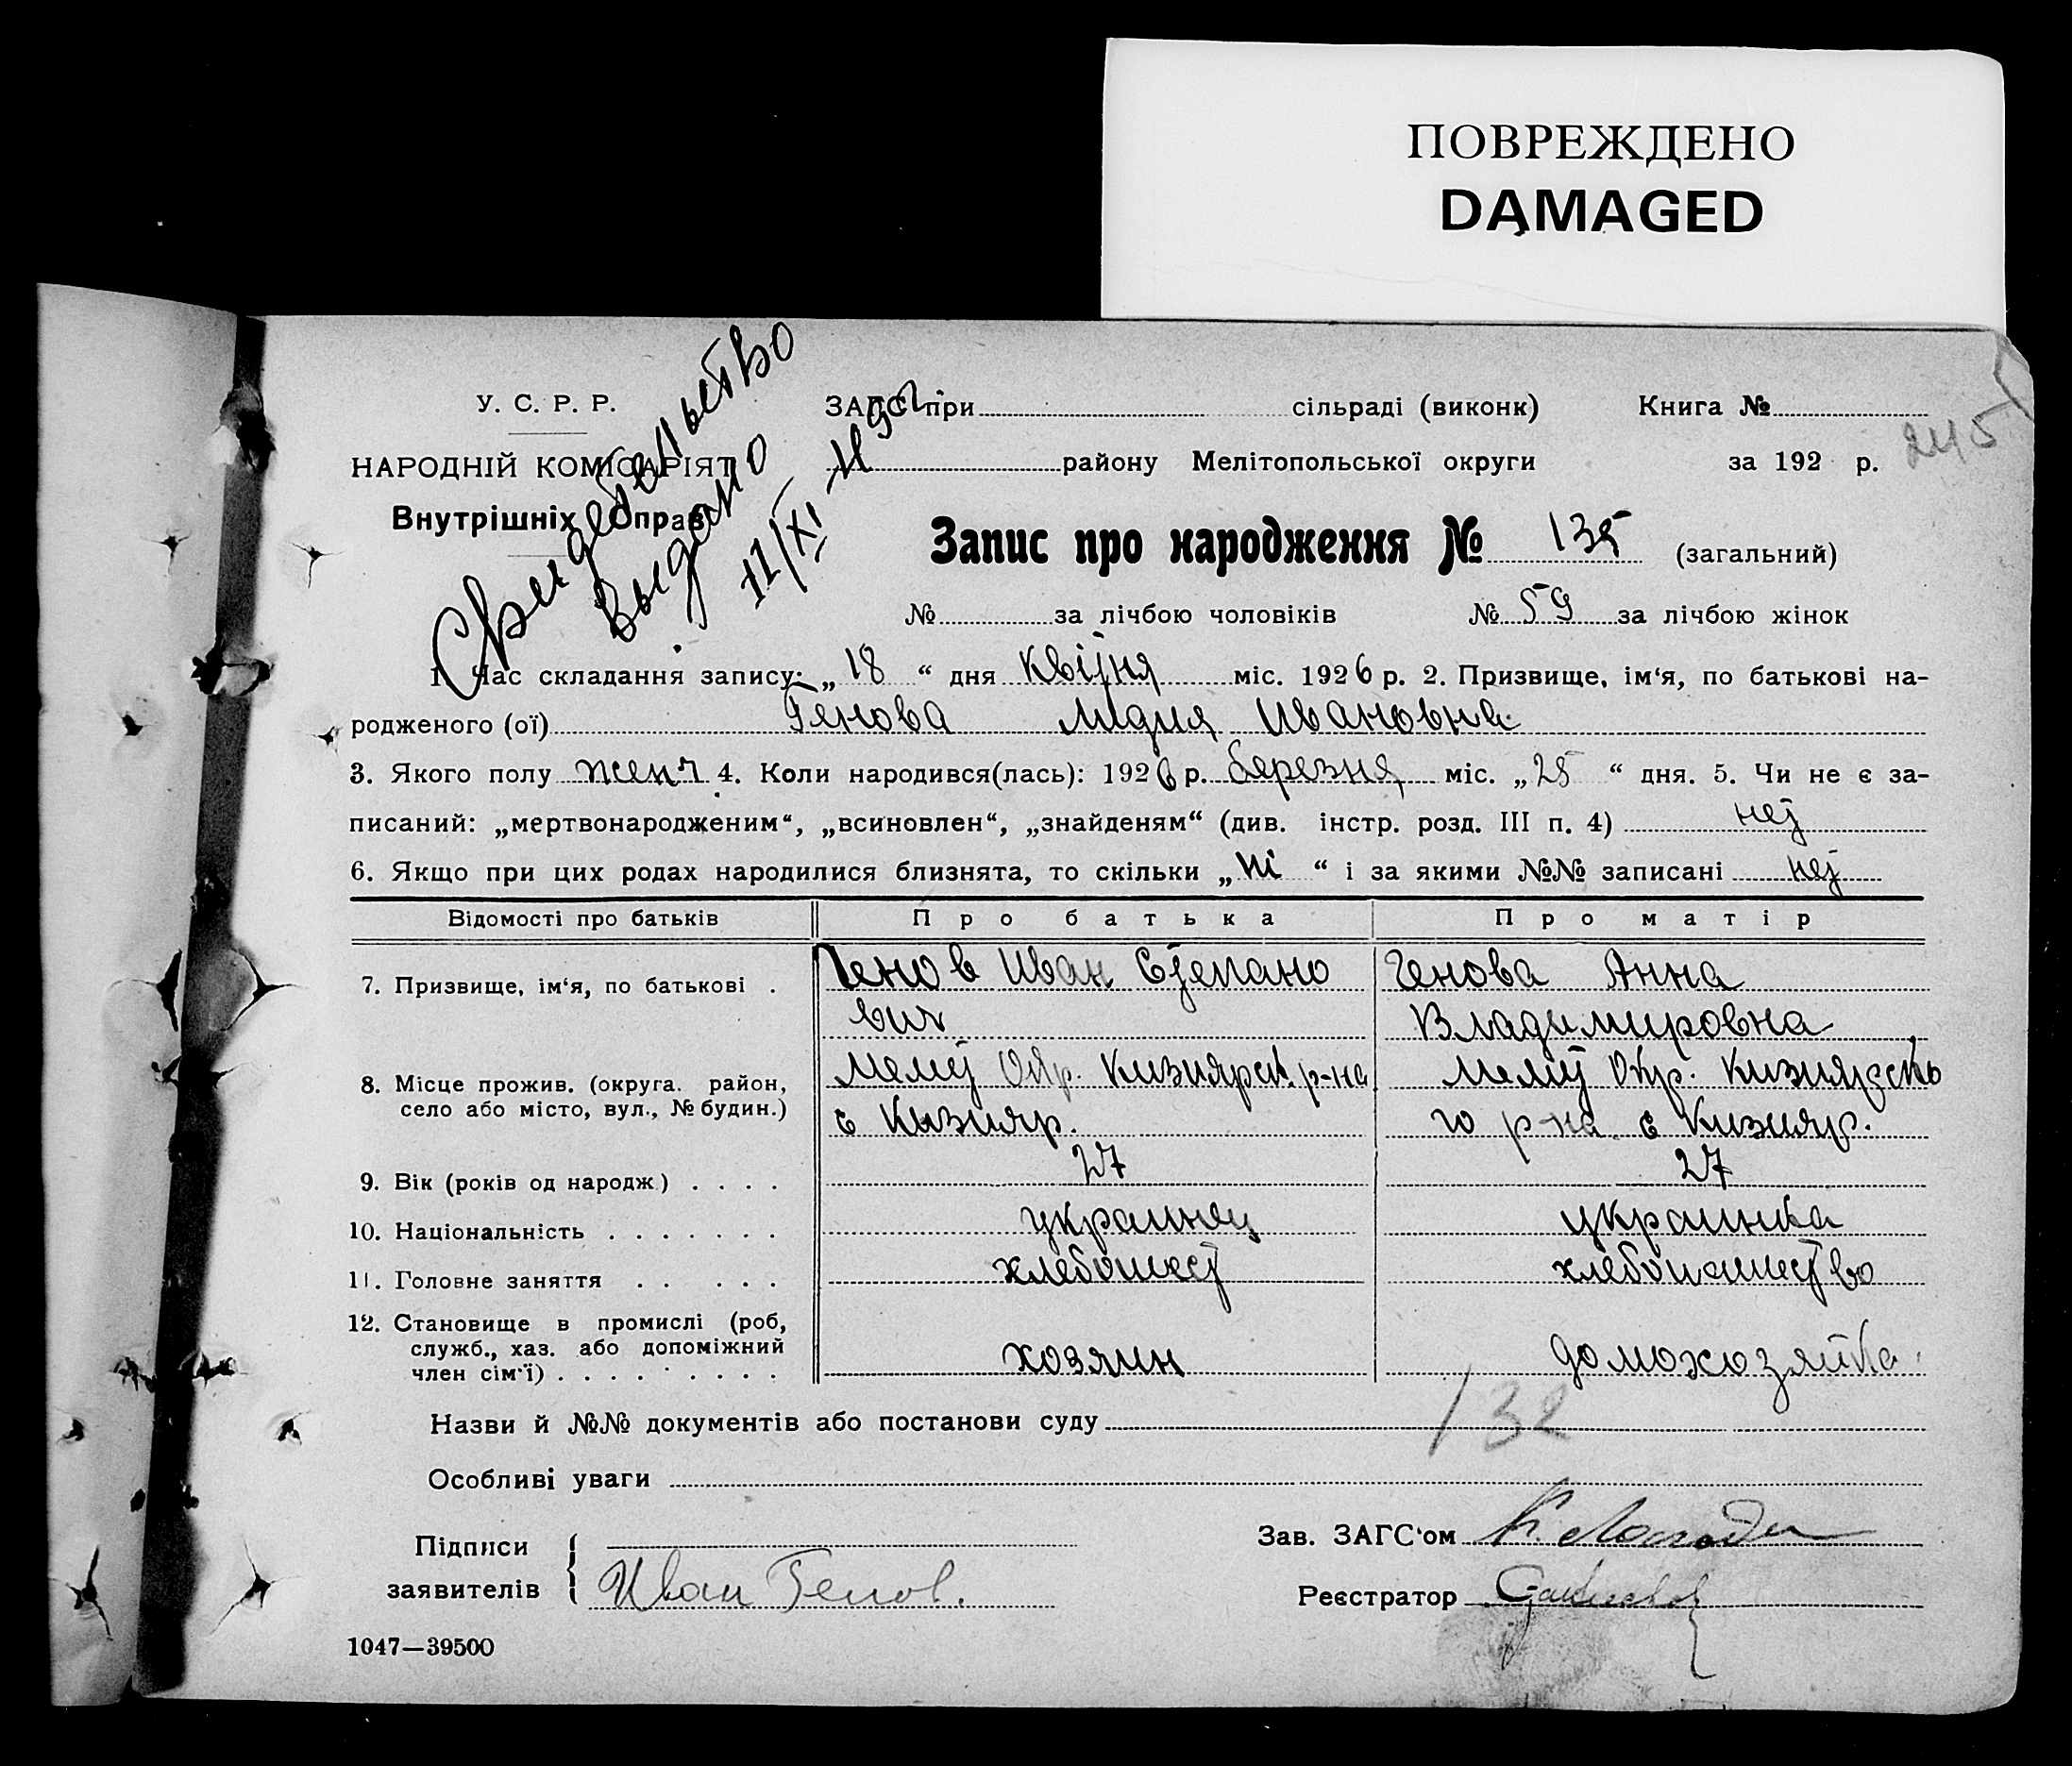 ПОВРЕЖДЕНО
DAMAGED
У. С. Р. Р.
НАРОДНІЙ КОМІСАРІЯТ
Внутрішніх Справ
Свидетельство
выдано
11/XI
ЗАГС при сільраді (виконк) Книга №
району Мелітопольської округи за 192 р.
245
Запис про народження № 135 (загальний)
№ за лічбою чоловіків № 59 за лічбою жінок
1. Час складання запису: „18“ дня квітня міс. 1926 р. 2. Призвище, ім‘я, по батькові на-
родженого (ої) Генова Лидия Ивановна
3. Якого полу женч 4. Коли народився(лась): 1926 р. березня міс. „25“ дня. 5. Чи не є за-
писаний: „мертвонародженим“, „всиновлен“, „знайденям“ (див. інстр. розд. III п. 4) нет
6. Якщо при цих родах народилися близнята, то скільки „ні“ і за якими №№ записані нет
Відомості про батьків Про батька Про матір
7. Призвище, ім‘я, по батькові . Генов Иван Степано Генова Анна
вич Владимировна
8. Місце прожив. (округа. район, Мелит Окр. Кизиярск. р-на Мелит Окр. Кизиярско
село або місто, вул., № будин.) с Кизияр. го р-на с Кизияр.
9. Вік (років од народж.) . . . . 27 27
10. Національність . . . . . . . украинец украинка
11. Головне заняття . . . . . хлебопашест хлебопашество
12. Становище в промислі (роб,
служб., хаз. або допоміжний
член сім‘ї) . . . . . . . . . хозяин домохозяйка
132
Назви й №№ документів або постанови суду
Особливі уваги
Підписи
заявителів Иван Генов.
Зав. ЗАГС‘ом
Реєстратор
1047—39500